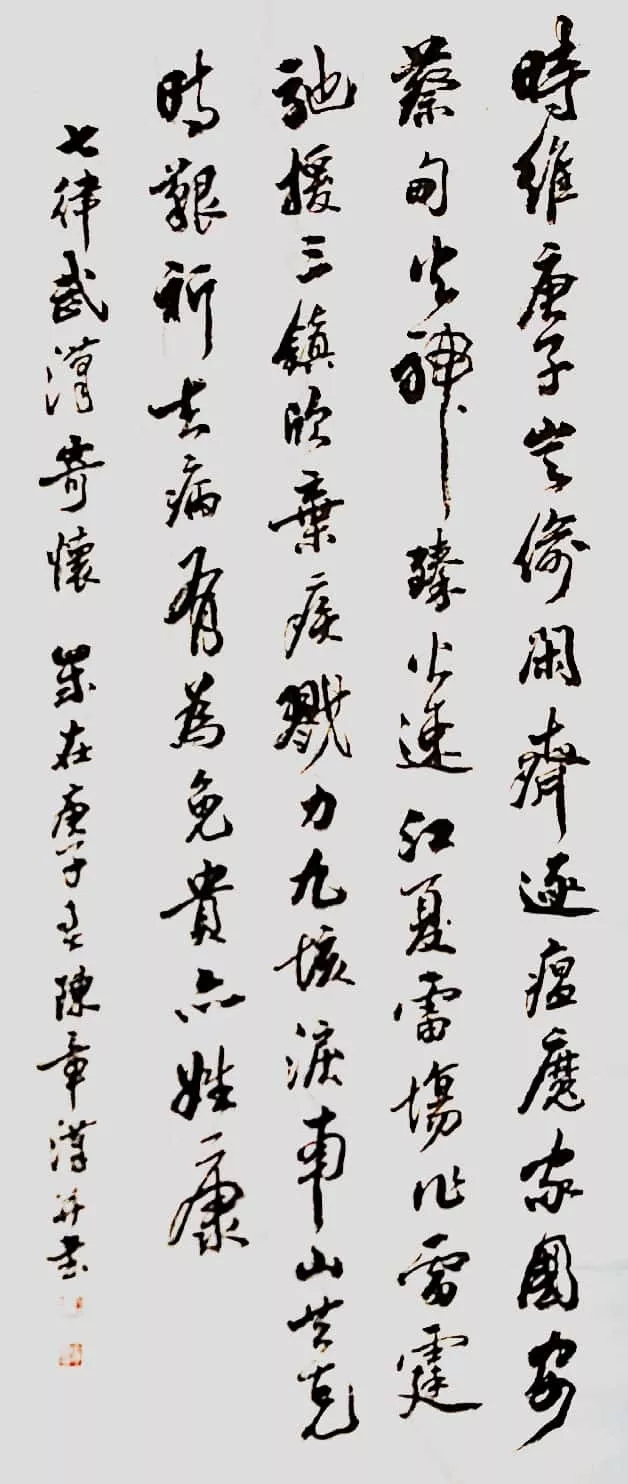 時維庚子豈偷閑齊逐瘟魔家國安
蔡甸火神臻火速江夏雷場作雷霆
馳援三鎮欣棄疾戮力九垓淚車山共克
時艱祈去病有為免貴亦姓康
七律武漢寄懷 歲在庚子春陳章漢并書